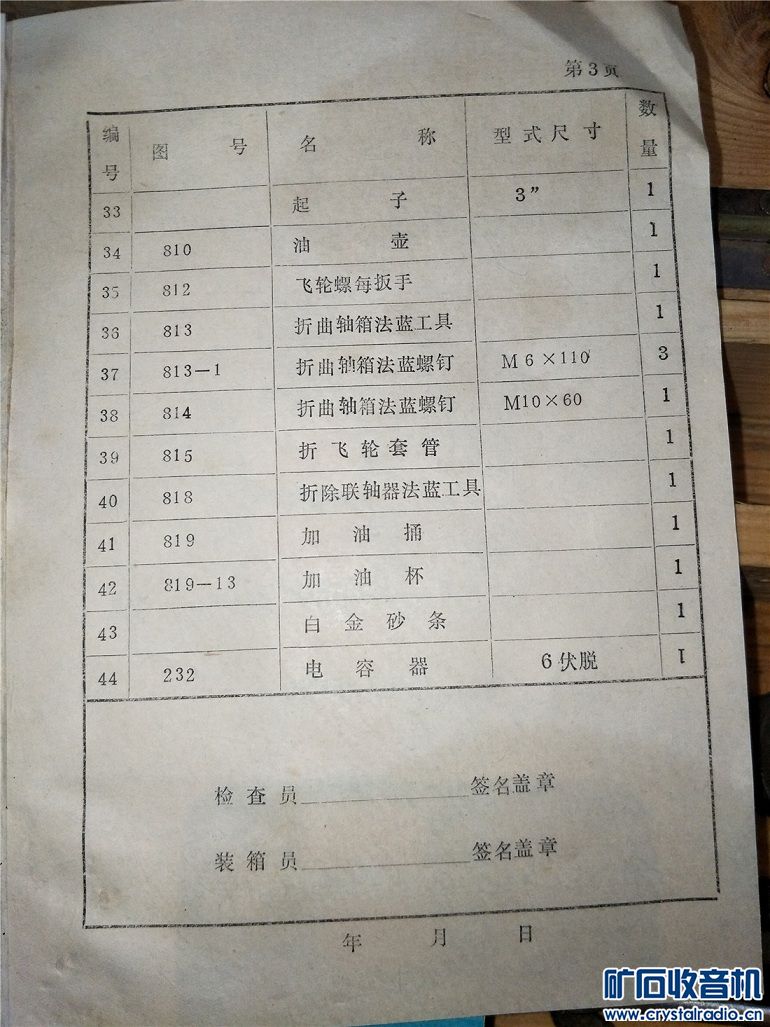 第3页
编号 图号 名称 型式尺寸 数量
33 起子 3" 1
34 810 油壶 1
35 812 飞轮螺每扳手 1
36 813 折曲轴箱法蓝工具 1
37 813-1 折曲轴箱法蓝螺钉 M6×110 3
38 814 折曲轴箱法蓝螺钉 M10×60 1
39 815 折飞轮套管 1
40 818 折除联轴器法蓝工具 1
41 819 加油捅 1
42 819-13 加油杯 1
43 白金砂条 1
44 232 电容器 6伏脱 1
检查员____________签名盖章
装箱员____________签名盖章
年 月 日
矿石收音机
www.crystalradio.cn